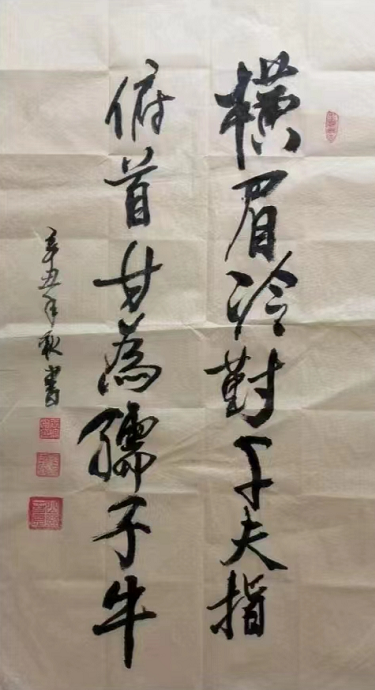 橫眉冷對千夫指
俯首甘為孺子牛
辛丑年秋書